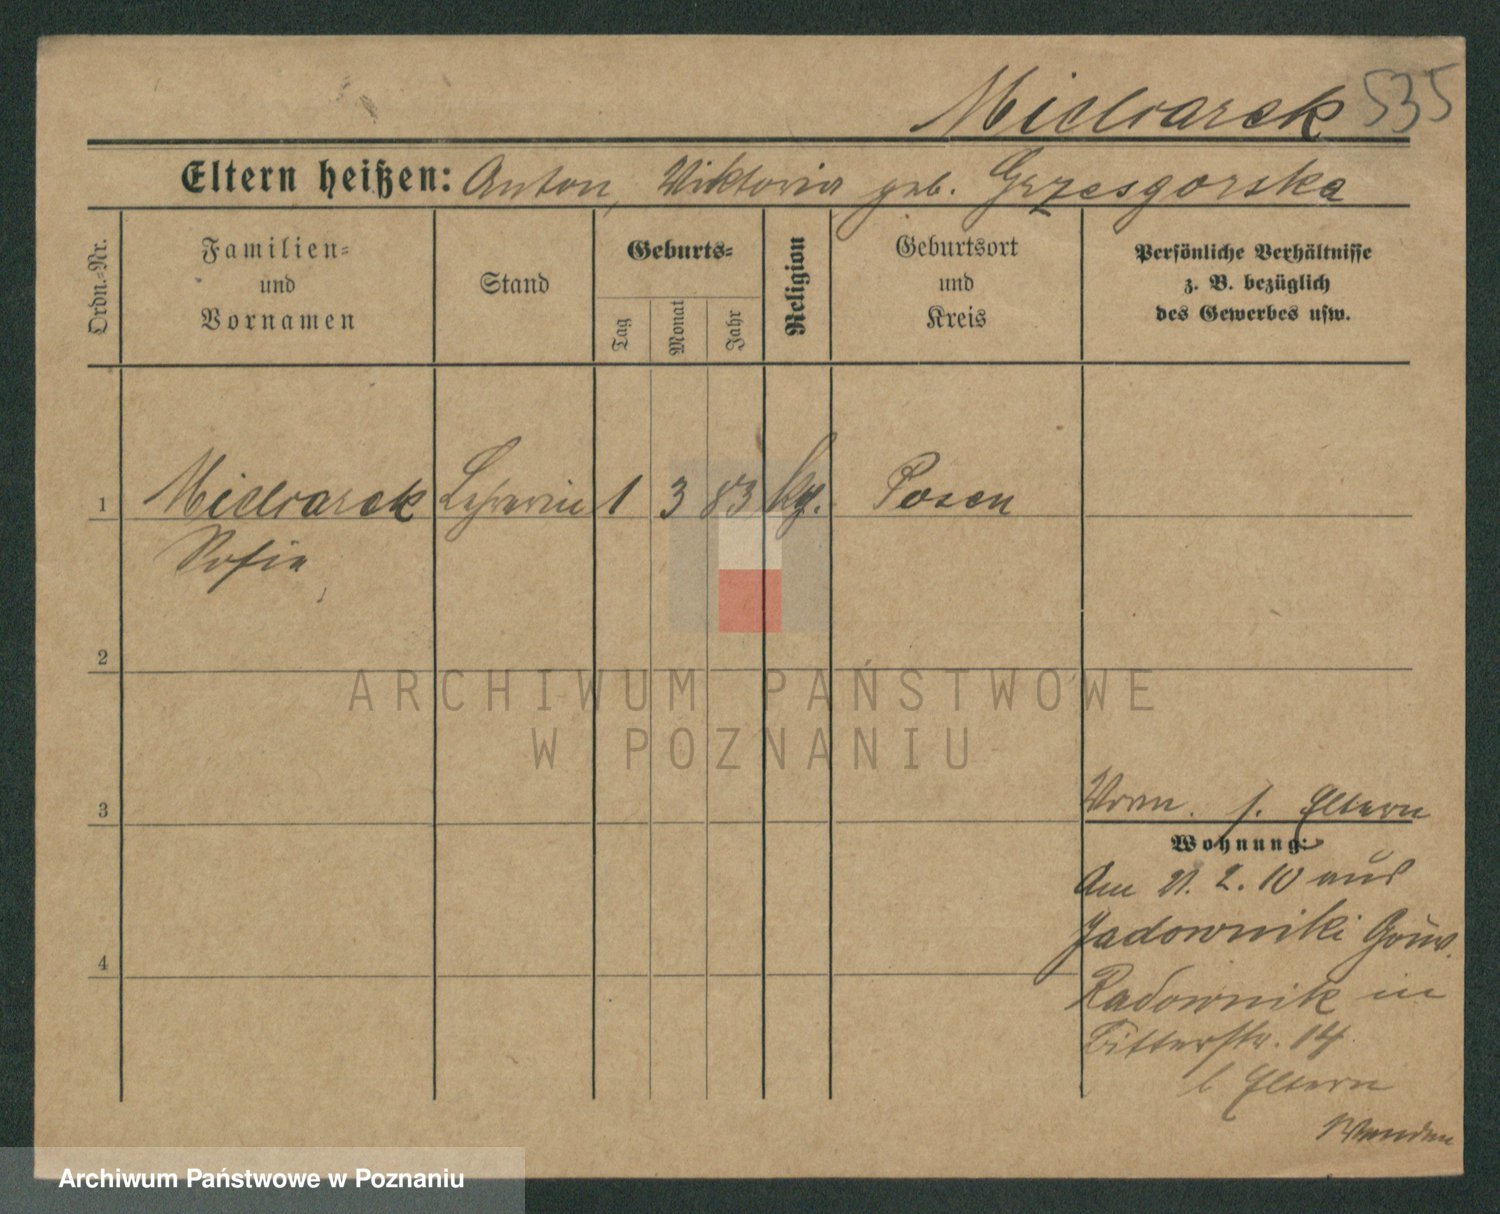 Mielcarek 535
Eltern heißen: Anton, Viktoria geb. Grzesgorska
Ordn.-Nr.
Familien-
und
Vornamen
Stand
Geburts-
Tag
Monat
Jahr
Religion
Geburtsort
und
Kreis
Persönliche Verhältnisse
z. B. bezüglich
des Gewerbes usw.
1 Mielcarek Lehrerin 1 3 83 kg. Posen
Sofie
2
ARCHIWUM PAŃSTWOWE
W POZNANIU
3
Vorm. s. Eltern
Wohnung:
Am 21. 2. 10 aus
Jadowniki
4
Radownik in
Ritterstr. 14
b Eltern
Wenden
Archiwum Państwowe w Poznaniu